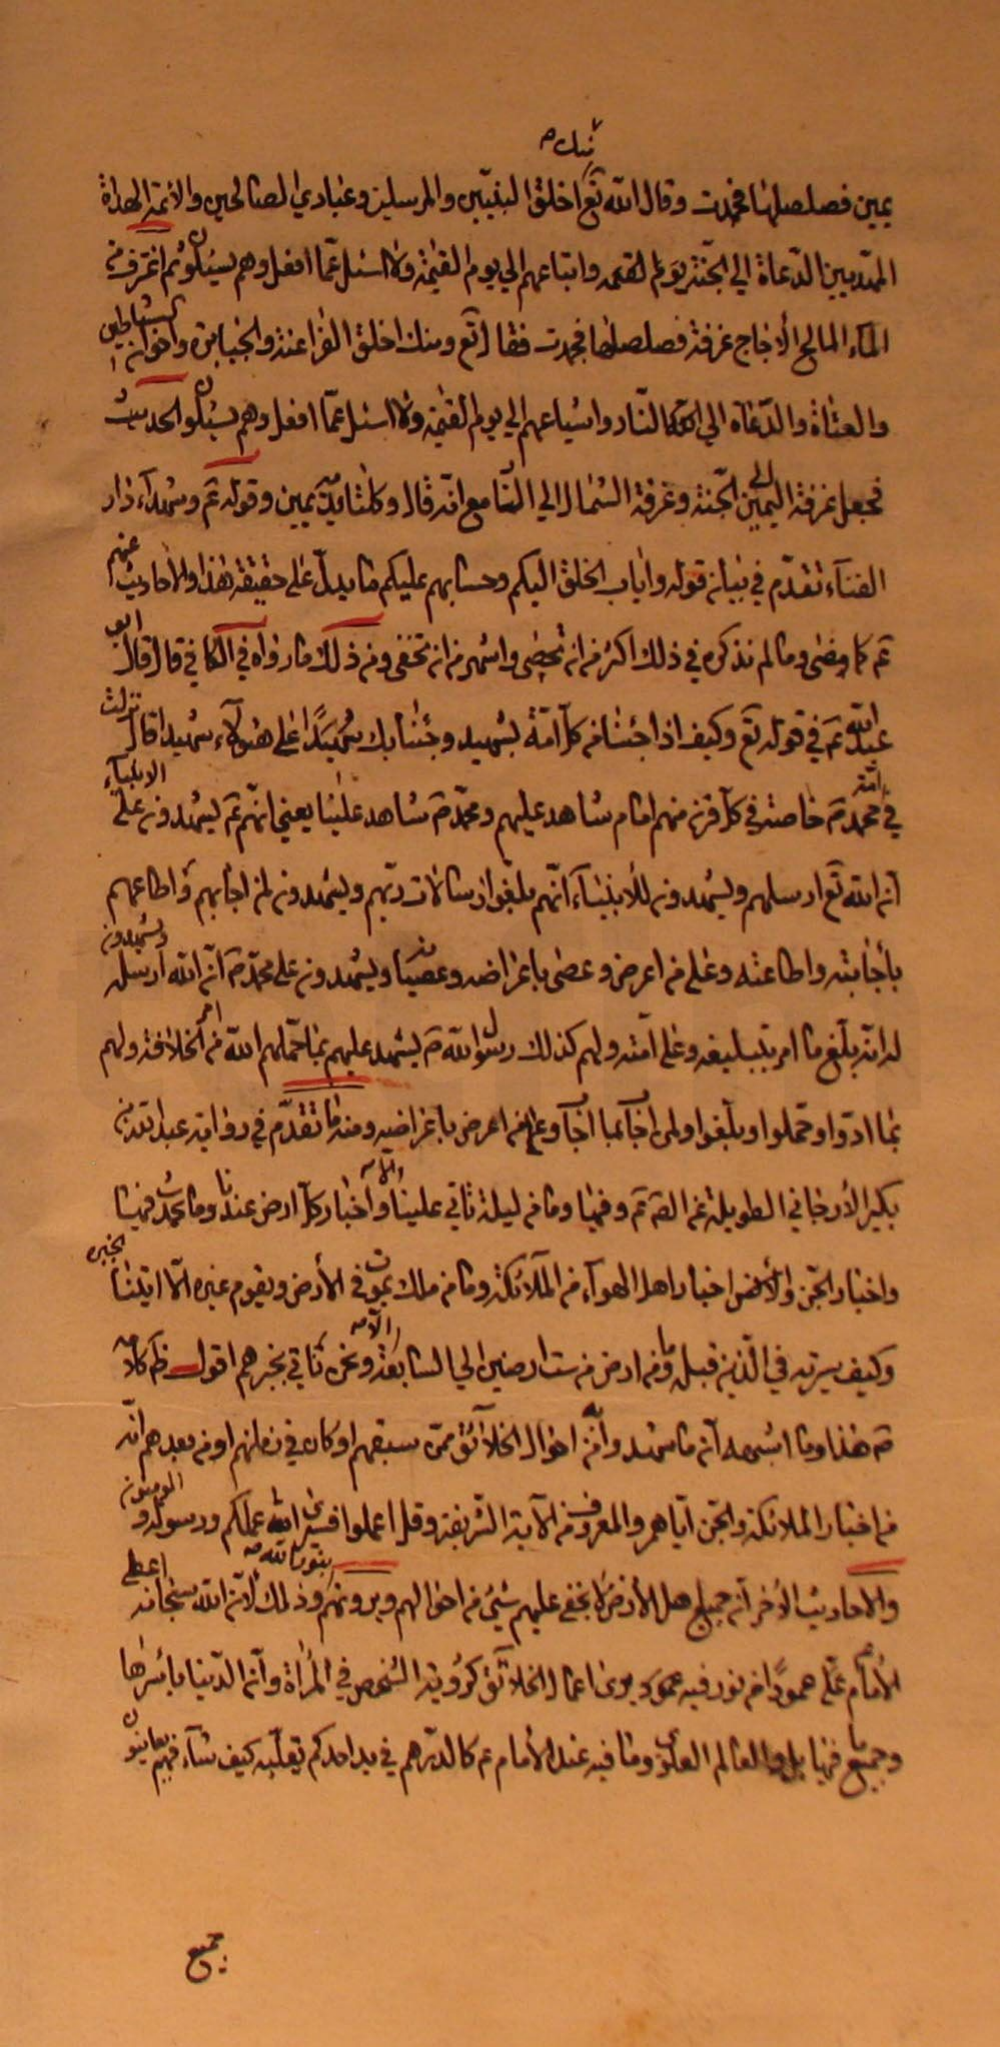 منك
يمين فصلصلها فجمدت وقال الله تع اخلق النبيّين والمرسلين وعبادي الصالحين والأئمة الهداة
المهديين الدعاة الي الجنّة يوم القيمة واتباعهم الي يوم القيمة ولا اسئل عمّا افعل وهم يسئلون ثم اغترف من
الماء المالح الأجاج غرفة فصلصلها فجمدت فقال تع ومنك اخلق الفراعنة والجبابرة واخوان الشياطين
والعتاة والدّعاة الي النّار واشياعهم الي يوم القيمة ولا اسئل عمّا افعل وهم يسئلون الحديث
فجعل غرفة اليمين الي الجنّة وغرفة الشمال الي النّار مع انّه قال وكلتا يديه يمين وقوله ع وشهداء دار
الفناء تقدّم في بيانه قوله واياب الخلق اليكم وحسابهم عليكم ما يدلّ علي حقيقة هذا والأحاديث عنهم
ع كما مضي وما لم نذكره في ذلك اكثر من ان تحصي واشهر من ان تخفي ومن ذلك ما رواه في الكافي قال قال ابو
عبد الله ع في قوله تع وكيف اذا جئنا من كل امّة بشهيد وجئنا بك علي هؤلاء شهيدا قال نزلت
في امّة محمد ص خاصة في كلّ قرن منهم امام شاهد عليهم ومحمّد ص شاهد علينا يعني انّهم ع يشهدون علي الانبياء
انّ الله تع ارسلهم ويشهدون للأنبياء انّهم بلّغوا رسالات ربّهم ويشهدون لمن اجابهم واطاعهم
بأجابته واطاعته وعلي من اعرض وعصي باعراضه وعصيانه ويشهدون علي محمّد ص انّ الله ارسله ويشهدون
له انّه بلّغ ما امر بتبليغه وعلي امّته ولهم كذلك رسول الله ص يشهد عليهم بما حمّلهم الله من امر الخلافة ولهم
بما ادّوا وتحملوا وبلّغوا ولمن اجاب بما اجاب وعلي من اعرض باعراضه ومنه ما تقدّم في رواية عبد الله بن
بكير الأرجاني الطويلة عن ع وفيها وما من ليلة تأتي علينا الا واخبار كلّ ارض عندنا وما يحدث فيها
واخبار الجن واخبار اهل الهواء من الملائكة وما من ملك يموت في الأرض ويقوم غيره الّا اتينا بخبره
وكيف سيرته في الّذين قبله وما من ارض من ست ارضين الي السابعة الّا ونحن نأتي بخبرهم اقول كلامه
ع هذا وما اشبهه انّ ما شهدوا انّه احوال الخلائق ممّن سبقهم او كان في زمانهم او من بعدهم انّه
من اخبار الملائكة والجن ايّاهم والمعروف من الآية الشريفة وقل اعملوا فسيري الله عملكم ورسوله والمؤمنون
والأحاديث الأخر انّ جميع اهل الأرض لا يخفي عليهم شيئ من احوالهم ويرونهم بنور الله وذلك لأنّ الله سبحانه اعطي
الأمام ع عمودًا من نور فيه يري اعمال الخلائق كرؤية الشخص في المرآة وانّ الدّنيا بأسرها
وجميع ما فيها بل والعالم العلوي وما فيه عند الأمام ع كالدرهم في يد احدكم يقلّبه كيف شاء فهم يعاينون
جميع